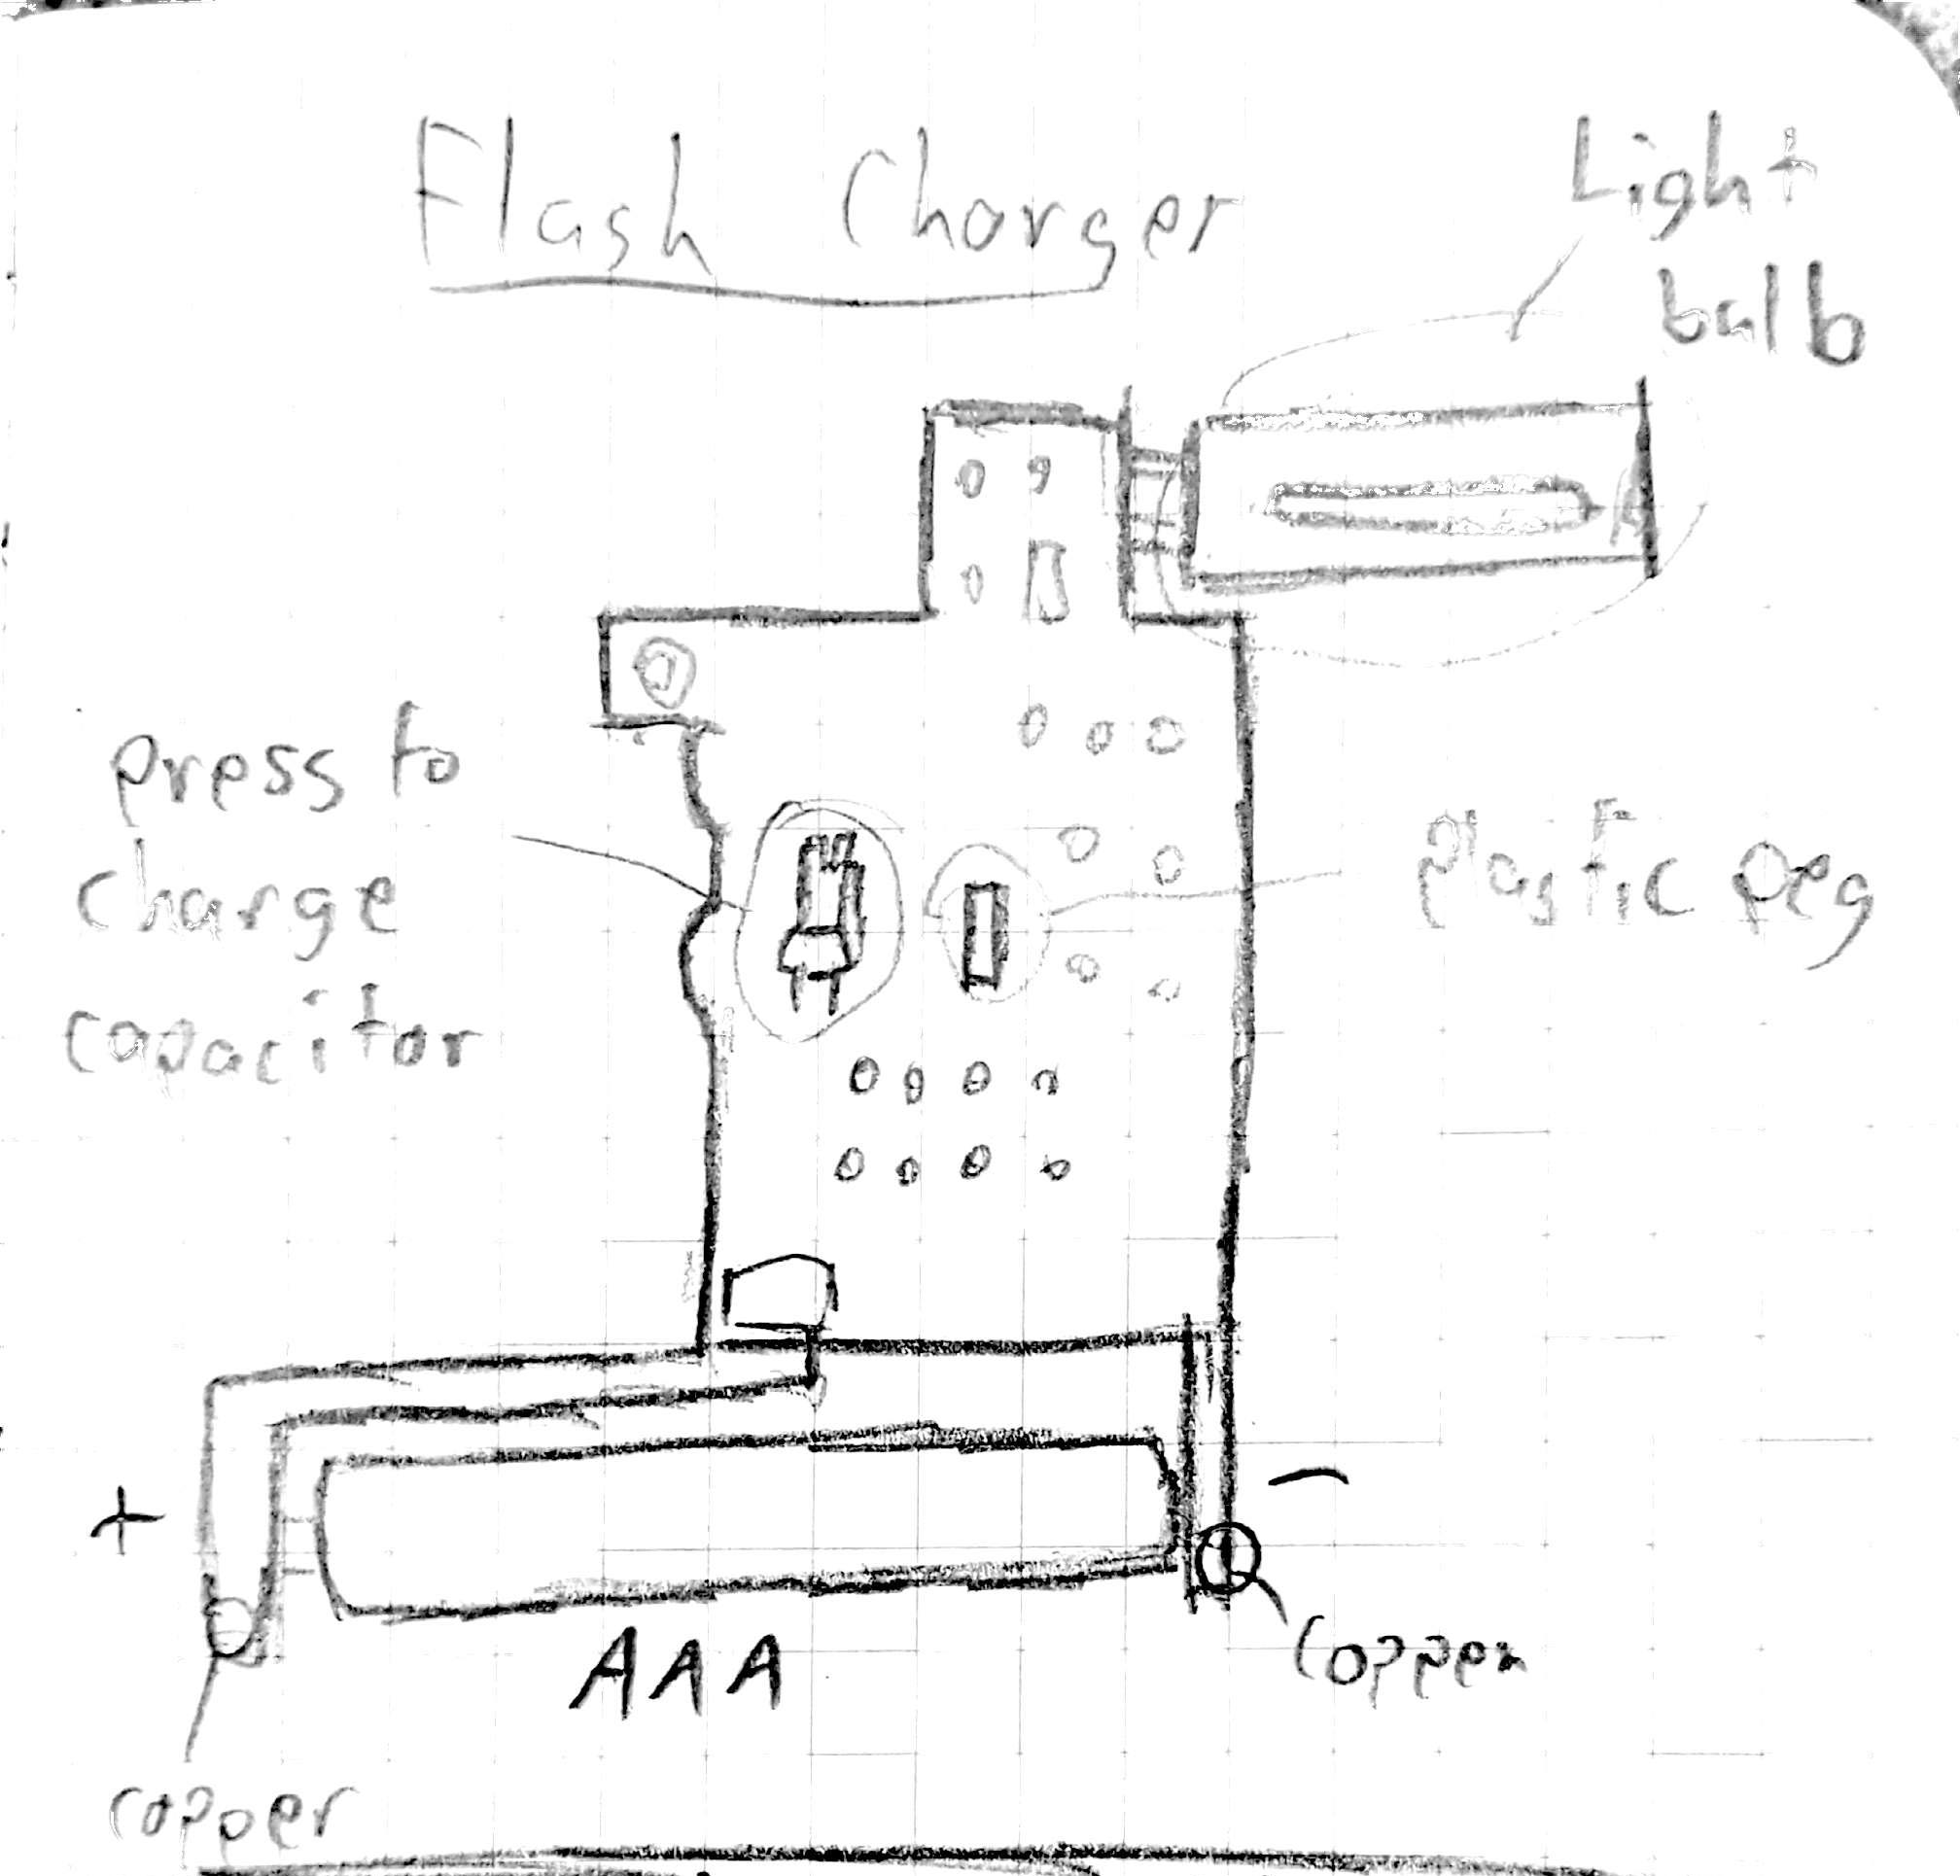 Flash Charger
Light
bulb
press to
charge
capacitor
plastic peg
+
−
AAA
copper
copper